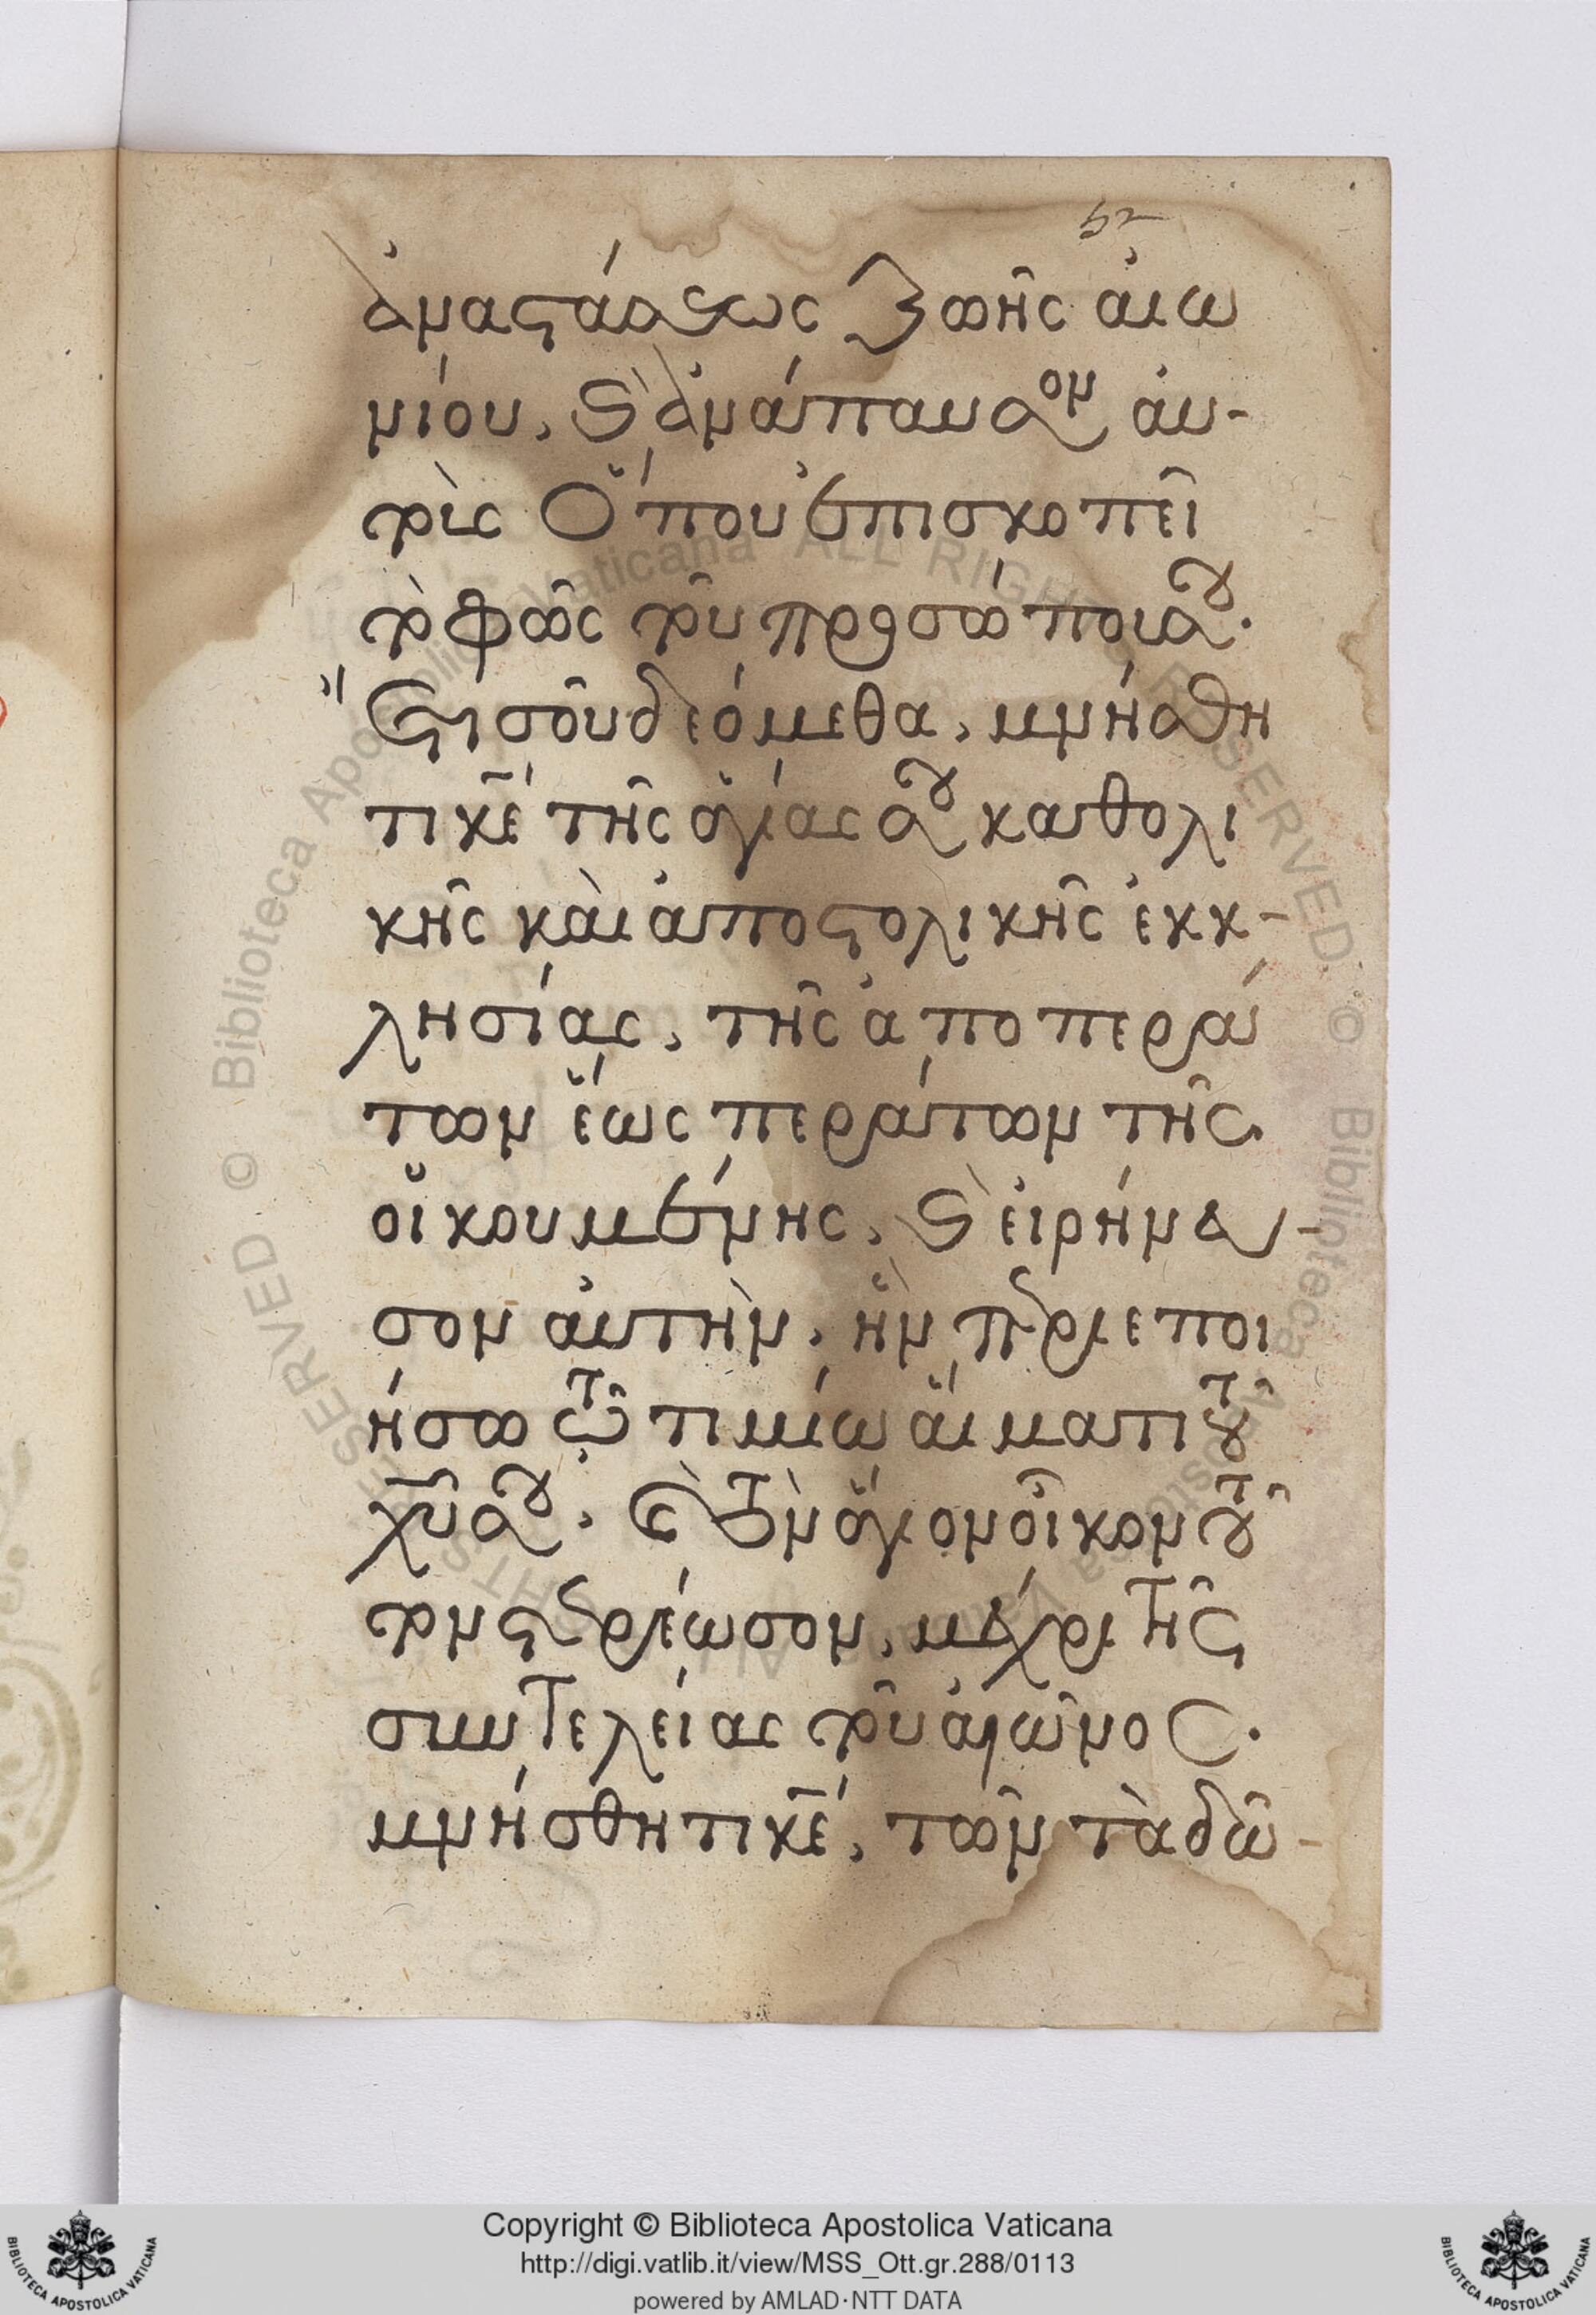 52
ἀναστάσεως ζωῆς αἰω
νίου, καὶ ἀνάπαυσον αὐ-
τοὺς ὅπου ἐπισκοπεῖ
τὸ φῶς τοῦ προσώπου σου.
ἔτι σοῦ δεόμεθα, μνήσθη
τι κε τῆς ἁγίας σου καθολι
κῆς καὶ ἀποστολικῆς ἐκκ-
λησίας, τῆς ἀπο περά
των ἕως περάτων τῆς
οἰκουμένης, καὶ εἰρήνευ-
σον αὐτὴν, ἣν περιεποι
ήσω τῷ τιμίω αἵματι τοῦ
χυ σου. καὶ τὸν ἅγιον οἶκον τοῦ
τον στερέωσον, μέχρι τῆς
συντελείας τοῦ αἰῶνος.
μνήσθητι κε, τῶν τὰ δῶ-
Copyright © Biblioteca Apostolica Vaticana
http://digi.vatlib.it/view/MSS_Ott.gr.288/0113
powered by AMLAD·NTT DATA